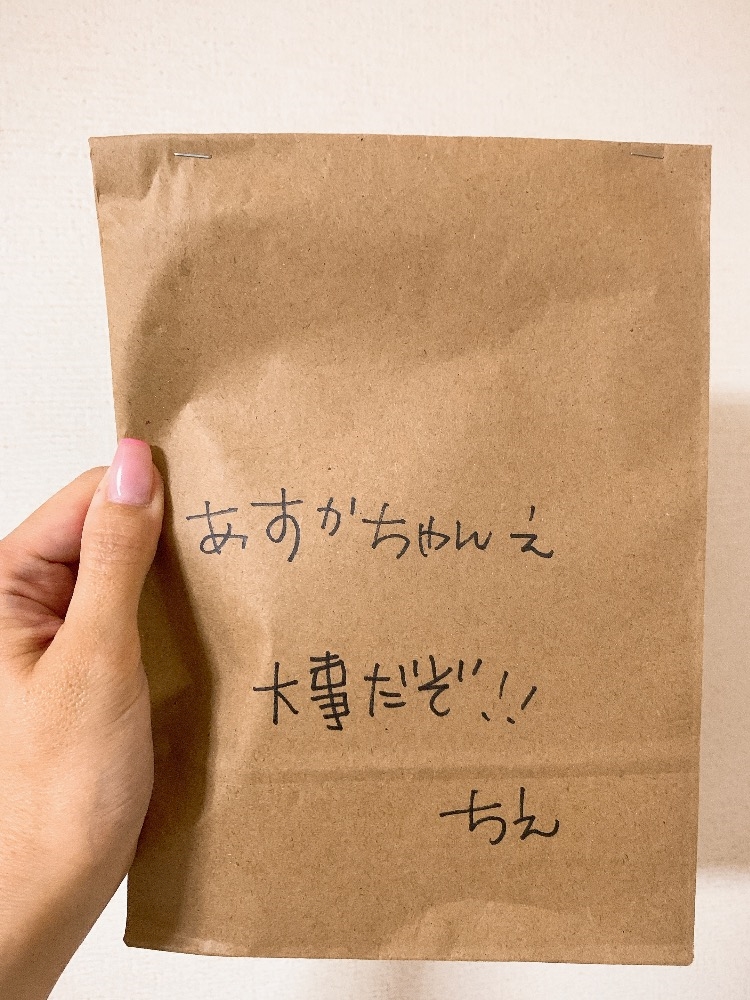 あすかちゃんえ
大事だぞ!!
ちえ